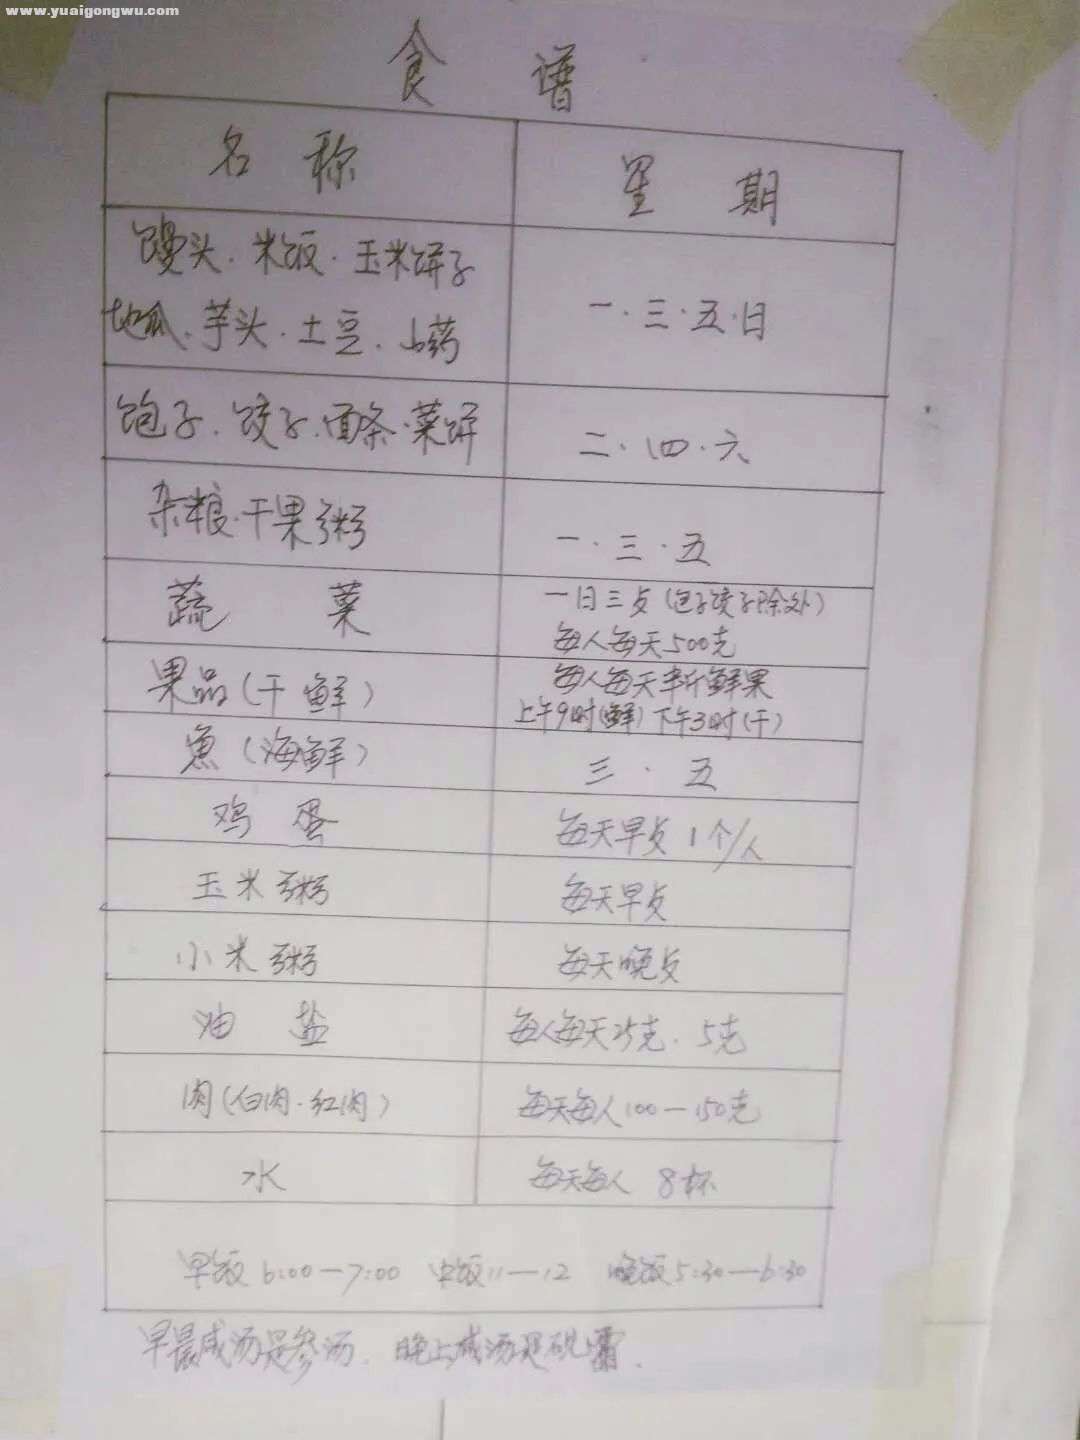 www.yuaigongwu.com
食谱
名称 星期
馒头·米饭·玉米饼子
地瓜·芋头·土豆·山药
一·三·五·日
包子·饺子·面条·菜饼 二·四·六
杂粮·干果粥 一·三·五
蔬菜
一日三歺(包子饺子除外)
每人每天500克
果品(干鲜)
每人每天半斤鲜果
上午9时(鲜)下午3时(干)
鱼(海鲜) 三·五
鸡蛋 每天早歺1个/人
玉米粥 每天早歺
小米粥 每天晚歺
油盐 每人每天25克·5克
肉(白肉·红肉) 每天每人100—150克
水 每天每人 8杯
早饭6:00—7:00 中饭11—12 晚饭5:30—6:30
早晨咸汤是参汤. 晚上咸汤是